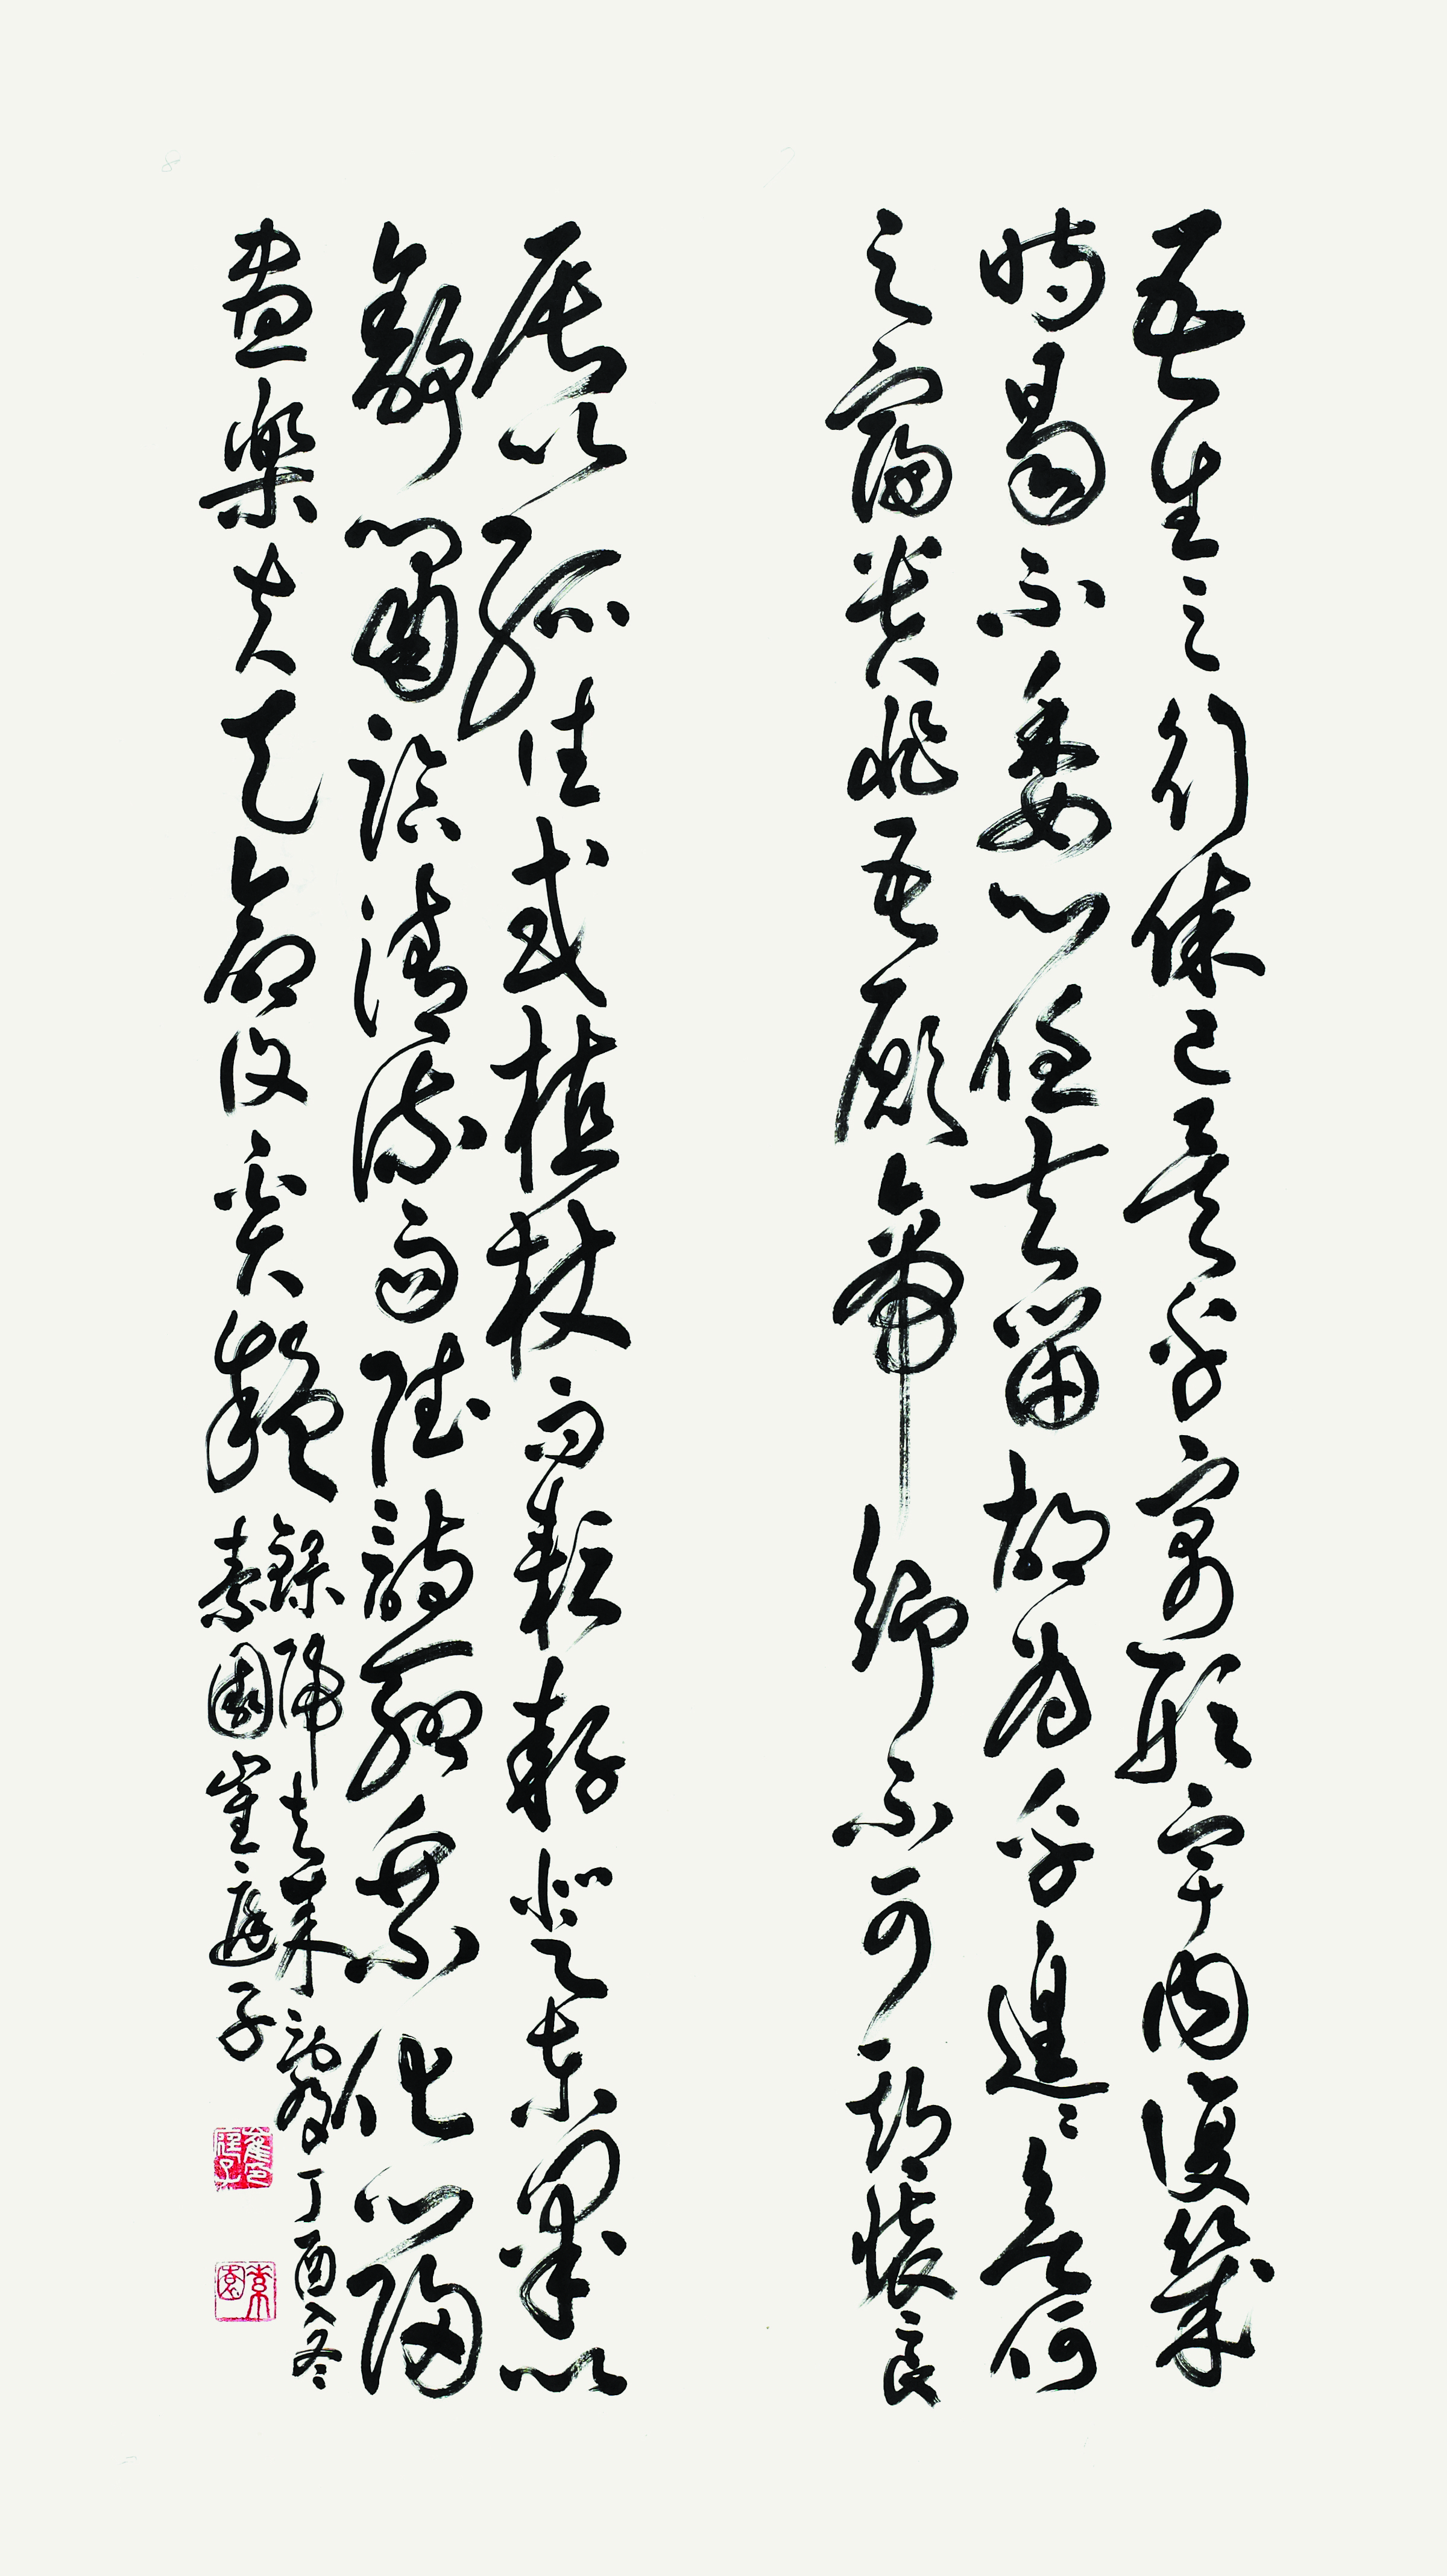 吾生之行休已矣乎寓形宇內復幾
時曷不委心任去留胡為乎遑遑欲何
之富貴非吾願帝鄉不可期懷良
辰以孤往或植杖而耘耔登東皋以
舒嘯臨清流而賦詩聊乘化以歸
盡樂夫天命復奚疑
錄歸去來辭 丁酉冬
素園崔庭子
崔印庭子
素園